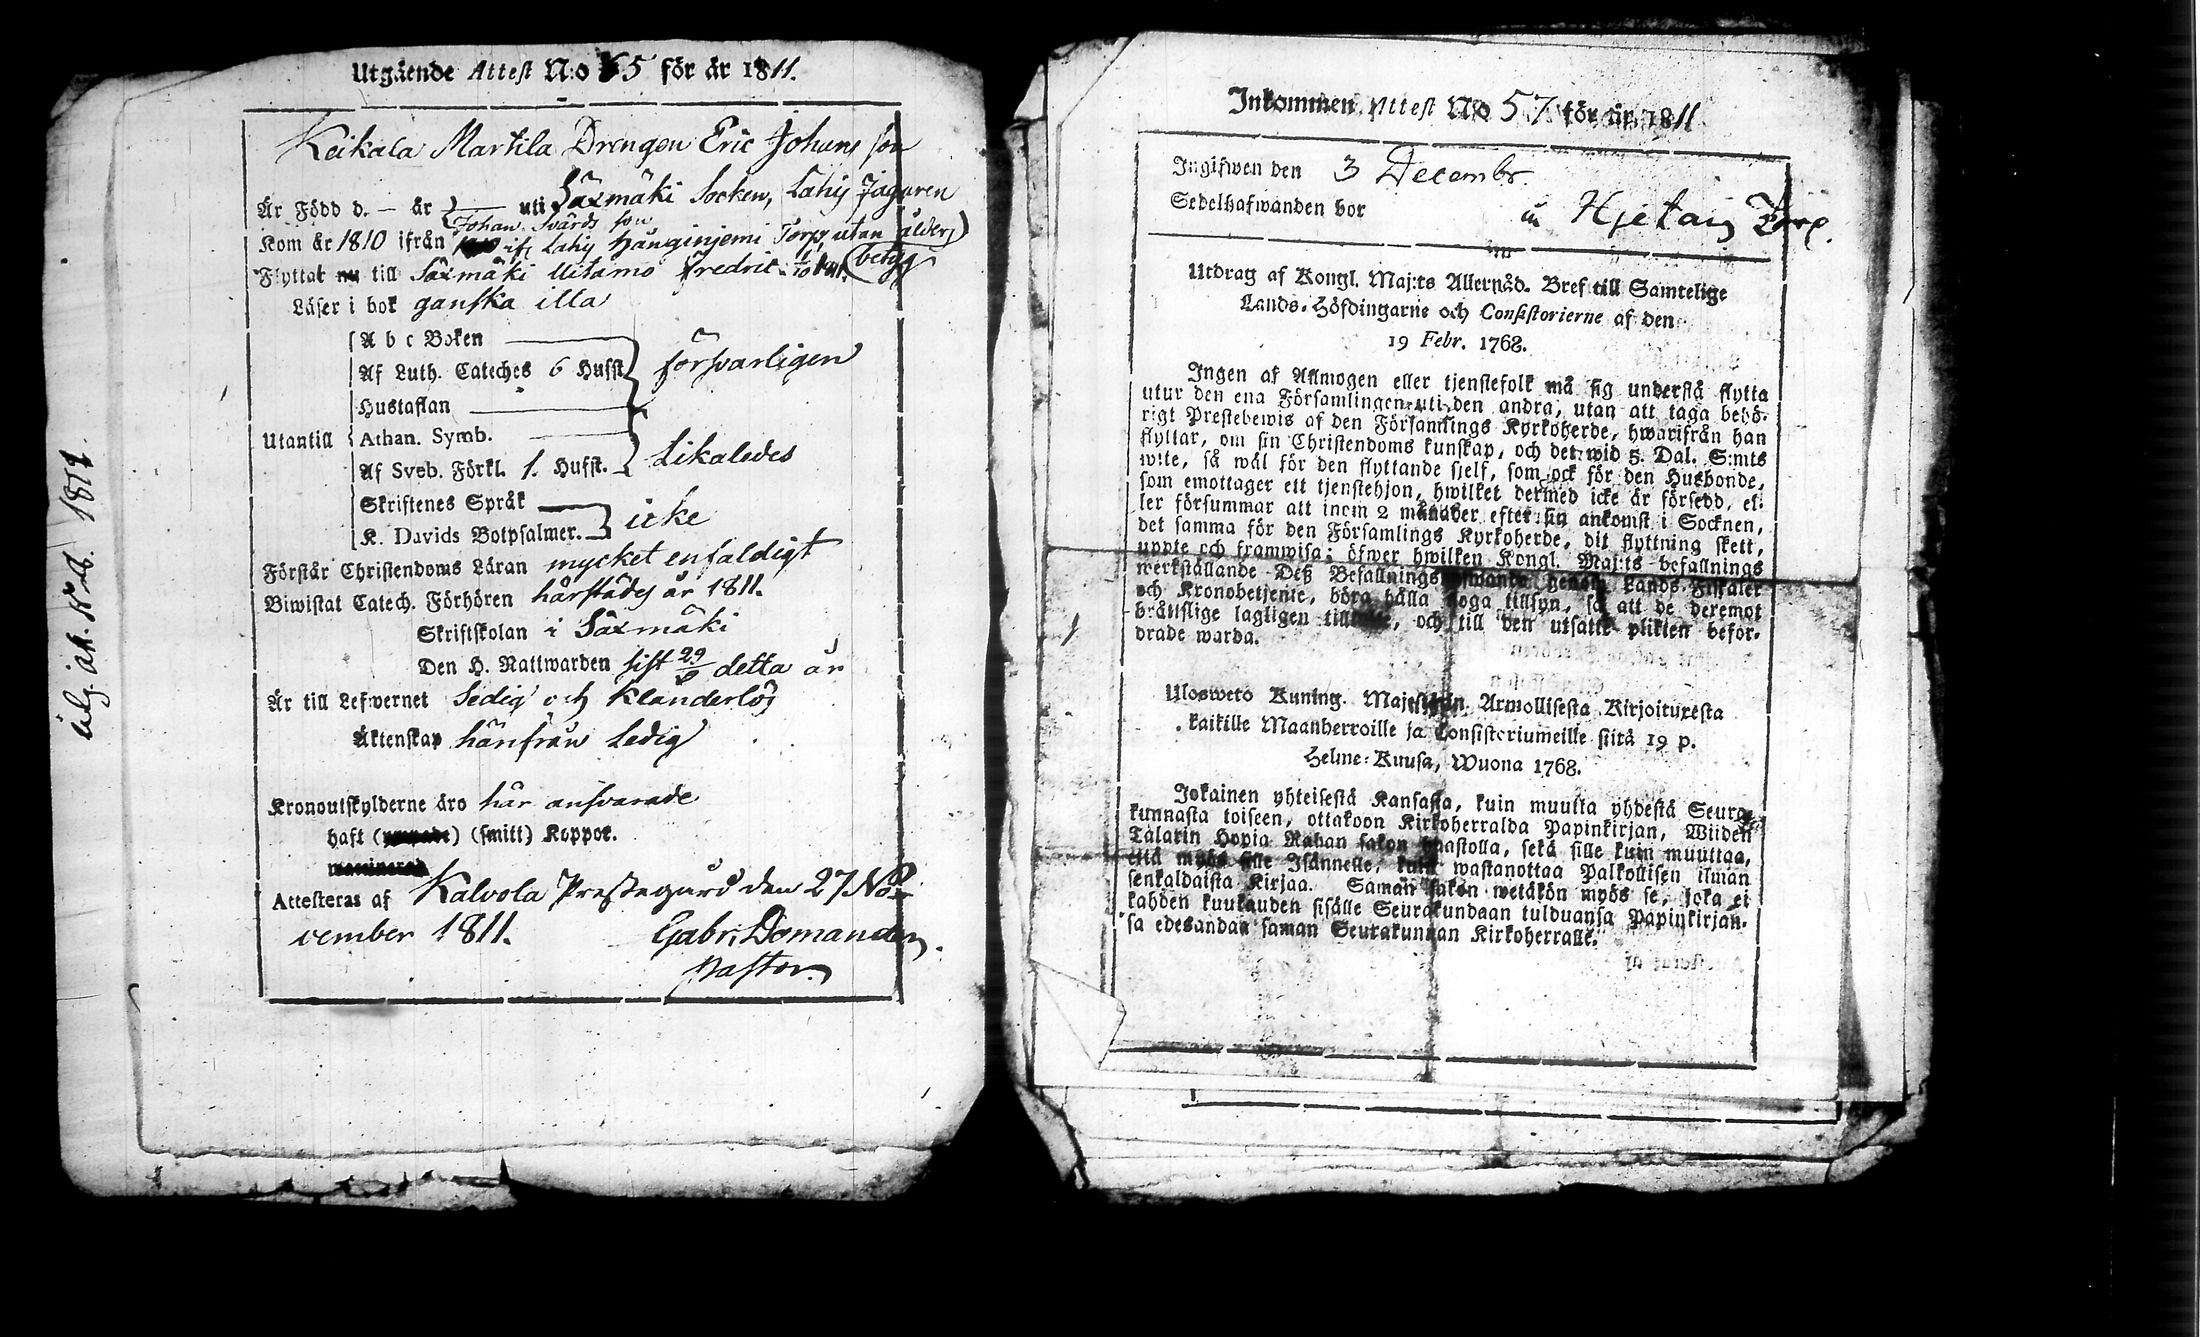 Utgående Attest N:o 65 för år 1811.
Keikala Martila Drengen Eric Johans son
Är Född d. — år — uti Säxmäki Socken, Lahis Jägaren
Johan Svärds son
Kom år 1810 ifrån Lahis Hanginjemi Torp, utan ålders
betyg
Flyttat nu till Säxmäki Uitamo Fredric
Läser i bok ganska illa
A b c Boken
Af Luth. Cateches 6 Hufst. försvarligen
Hustaflan
Utantill Athan. Symb.
Af Sveb. Förkl. 1. Hufst. Likaledes
Skriftenes Språk
K. Davids Botpsalmer. icke
Förstår Christendoms Läran mycket enfaldigt
Biwistat Catech. Förhören härstädes år 1811.
Skriftskolan i Säxmäki
Den H. Nattwarden sist 29/6 detta år
Är till Lefwernet Sedig och Klanderlös
Äktenskap hänfrån Ledig
Kronoutskylderne äro här ansvarade
haft (smitt) Koppor.
Attesteras af Kalvola Prestegård den 27 No-
vember 1811. Gabr. Domander,
Pastor.
1811.
Inkommen Attest No 57 för år 1811
Ingifwen den 3 Decembr.
Sedelhafwanden bor Torp.
Utdrag af Kongl. Maj:ts Allernåd. Bref till Samtelige
Lands-Höfdingarne och Consistorierne af den
19 Febr. 1768.
Ingen af Allmogen eller tjenstefolk må sig understå flytta
utur den ena Församlingen uti den andra, utan att taga behö-
rigt Prestebewis af den Församlings Kyrkoherde, hwarifrån han
flyttar, om sin Christendoms kunskap, och det wid 5. Dal. S:mts
wite, så wäl för den flyttande sjelf, som ock för den Husbonde,
som emottager ett tjenstehjon, hwilket dermed icke är försedd, el-
ler försummar att inom 2 månader efter sin ankomst i Socknen,
det samma för den Församlings Kyrkoherde, dit flyttning skett,
uppte och framwisa; öfwer hwilken Kongl. Maj:ts befallnings
werkställande Deß Befallningshafwande genom Lands-Fiskaler
och Kronobetjente, böra hålla noga tillsyn, så att de deremot
brättslige lagligen, och till den utsatte plikten befor-
drade warda.
Ulosweto Kuning. Majestetin Armollisesta Kirjoituxesta
kaikille Maanherroille ja Consistoriumeille siitä 19 p.
Helme-Kuusa, Wuona 1768.
Jokainen yhteisestä Kansasta, kuin muutta yhdestä Seura-
kunnasta toiseen, ottakoon Kirkoherralda Papinkirjan, Wiiden
Talarin Hopia Rahan sakon haastolla, sekä sille kuin muuttaa,
että myös sille Isännelle, kuin wastanottaa Palkollisen ilman
senkaldaista Kirjaa. Saman sakon wetäkön myös se, joka ei
kahden kuukauden sisälle Seurakundaan tulduansa Papinkirjan-
sa edesandaa saman Seurakunnan Kirkoherralle.